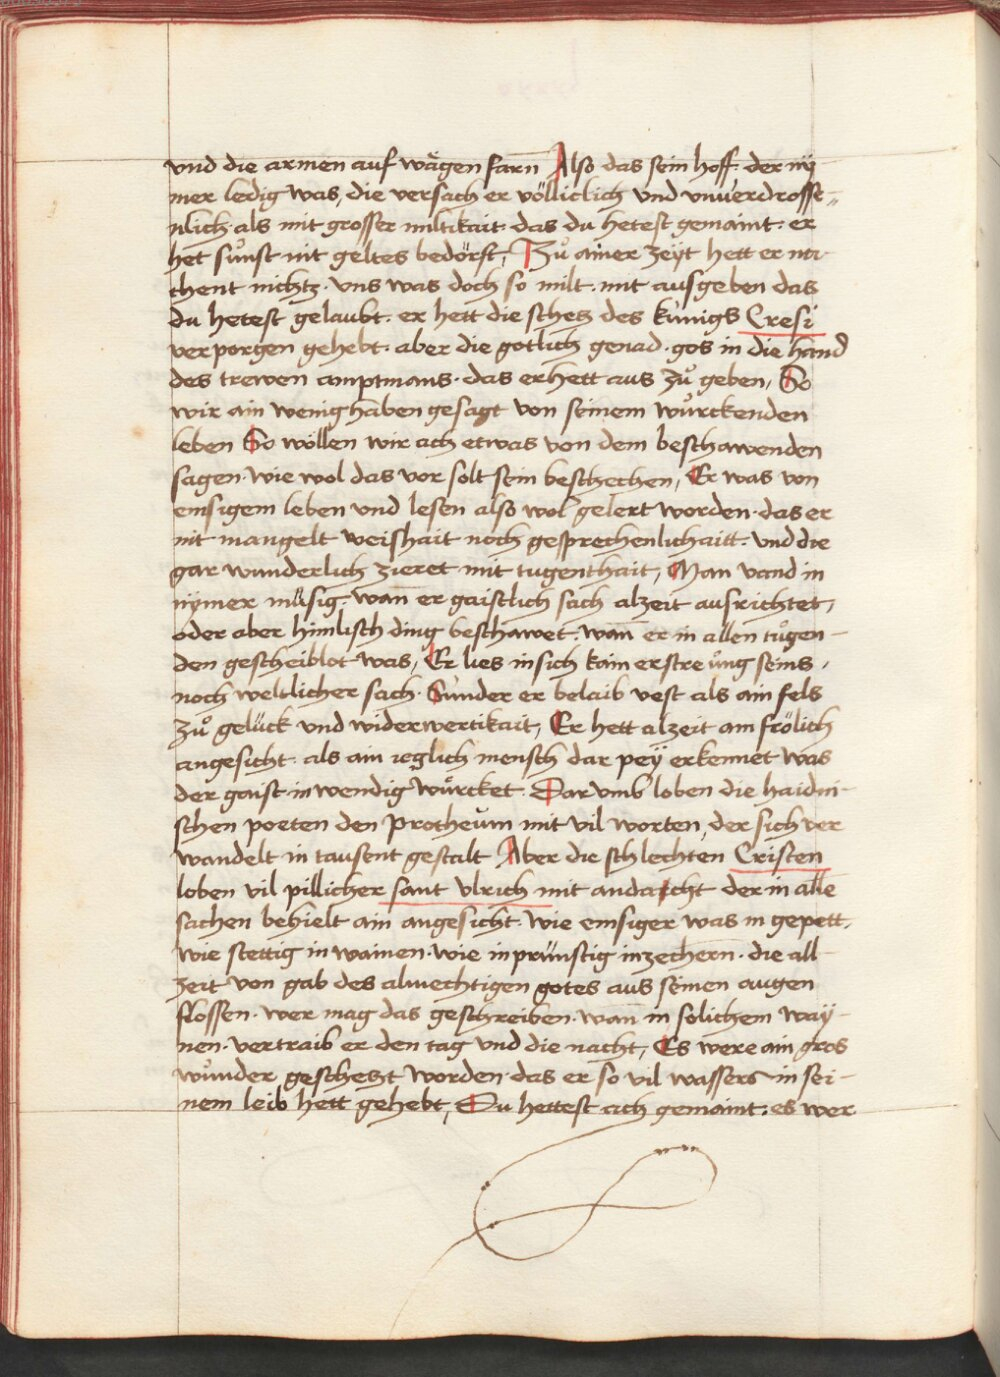 vnd die armen auf wägen farn̄ Also das sein hoff. der ny-
mer ledig was, die versach er völliclich vnd vnuerdrosse-
nlich. als mit grosser miltikait. das du hetest gemaint. er
het sůnst nit geltes bedörft, Zů ainer zeyt hett er na-
chent nichtz. vns was doch so milt. mit ausgeben das
du hetest gelaubt. er hett die schetz des künigs Cresi
verporgen gehebt. aber die gotlich genad. gos in die hand
des trewen amptmans. das er hett aus zů geben, So
wir ain wenig haben gesagt von seinem würckenden
leben So wöllen wir ach etwas von dem beschawenden
sagen. wie wol das vor solt sein beschechen, Er was von
emsigem leben vnd lesen also wol gelert worden. das er
nit mangelt weishait noch gesprechenlichaitt. vnd die
gar wunderlich zieret mit tugenthait, Man vand in
nymer müsig. wan̄ er gaistlich sach alzeit ausrichtet,
oder aber himlisch ding beschawet. wan̄ er in allen tůgen-
den gescheiblot was, Er lies in sich kain erstreůng seins,
noch weltlicher sach. Sunder er belaib vest als ain fels
zů gelück vnd widerwertikait, Er hett alzeit am frölich
angesicht. als ain ieglich mensch dar pey erkennet was
der gaist inwendig würcket. Darvmb loben die haidni-
schen poeten den Protheum mit vil worten, der sich ver
wandelt in tausent gestalt Aber die schlechten Cristen
loben vil pillicher sant Vlrich mit andacht der in alle
sachen behielt ain angesicht. wie emsiger was in gepett,
wie stettig in wainen. wie inprünstig in zechern. die all-
zeit von gab des almechtigen gotes aus seinen augen
flossen. wer mag das geschreiben. wan̄ in solichem way-
nen. vertraib er den tag vnd die nacht, Es were ain gros
wůnder geschetzt worden. das er so vil wassers in sei-
nem leib hett gehebt, Du hettest ach gemaint. es wer